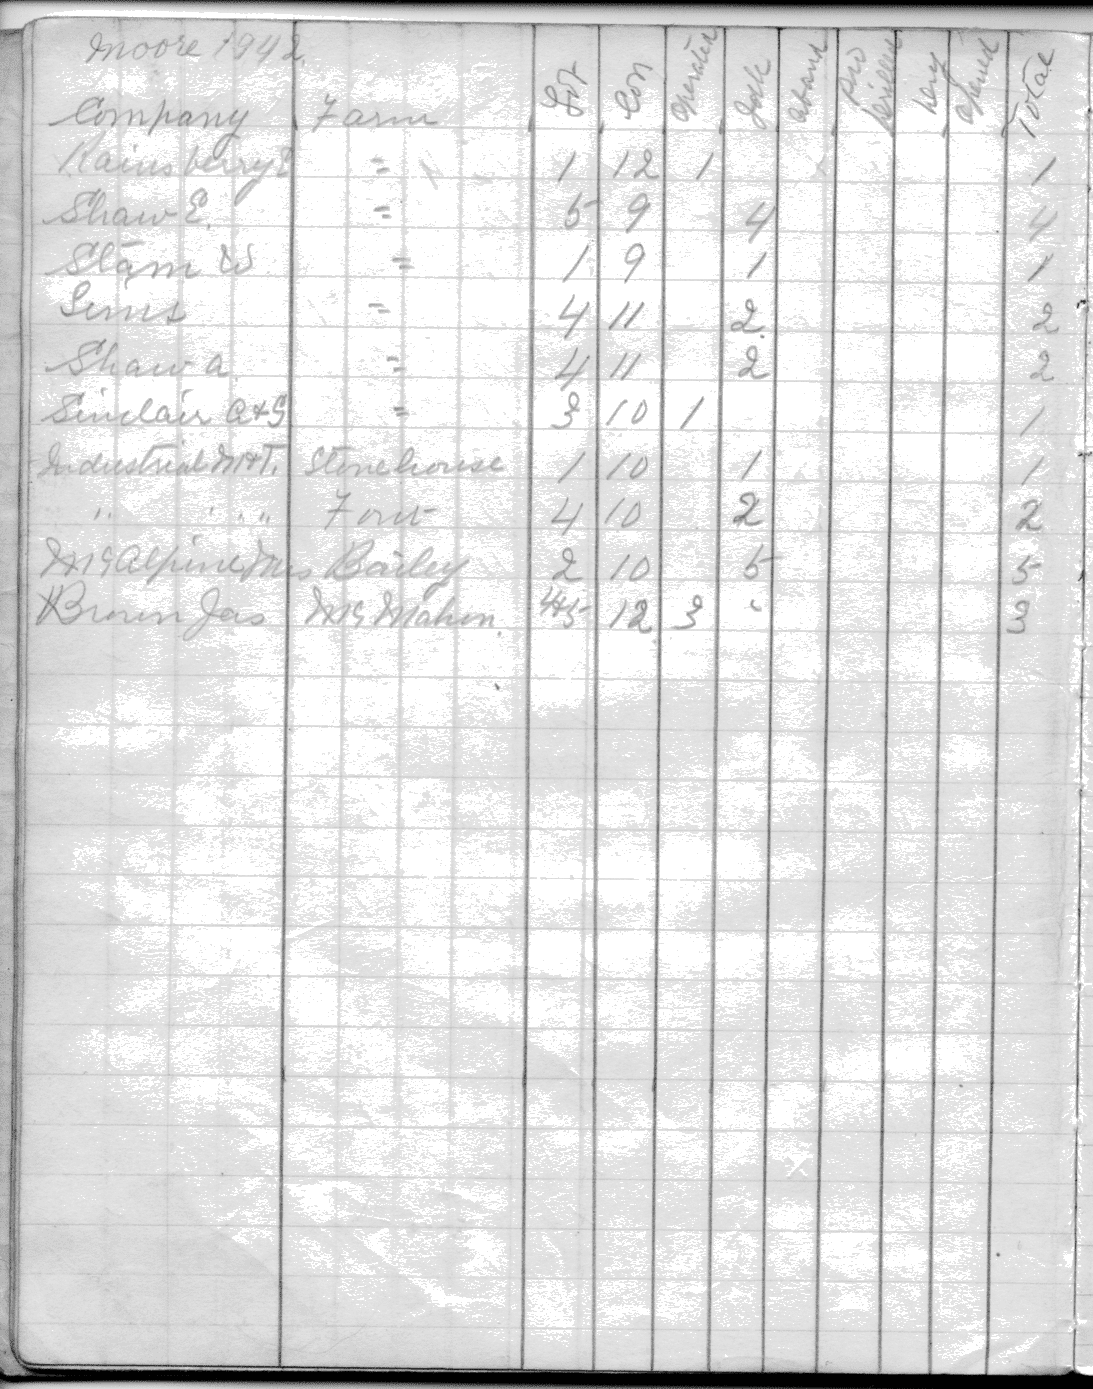 Moore 1942
Company Farm Lot Con Operated Idle Aband New Drilled Dry Opened Total
Rainsberry E = 1 12 1 1
Shaw E. = 5 9 4 4
Stam W = 1 9 1 1
Sims = 4 11 2 2
Shaw A = 4 11 2 2
Sinclair A+G = 3 10 1 1
Industrial M+T. Stonehouse 1 10 1 1
" " " " Font 4 10 2 2
McAlpine Mrs Bailey 2 10 5 5
Brown Jas McMahon. 4+5 12 3 3